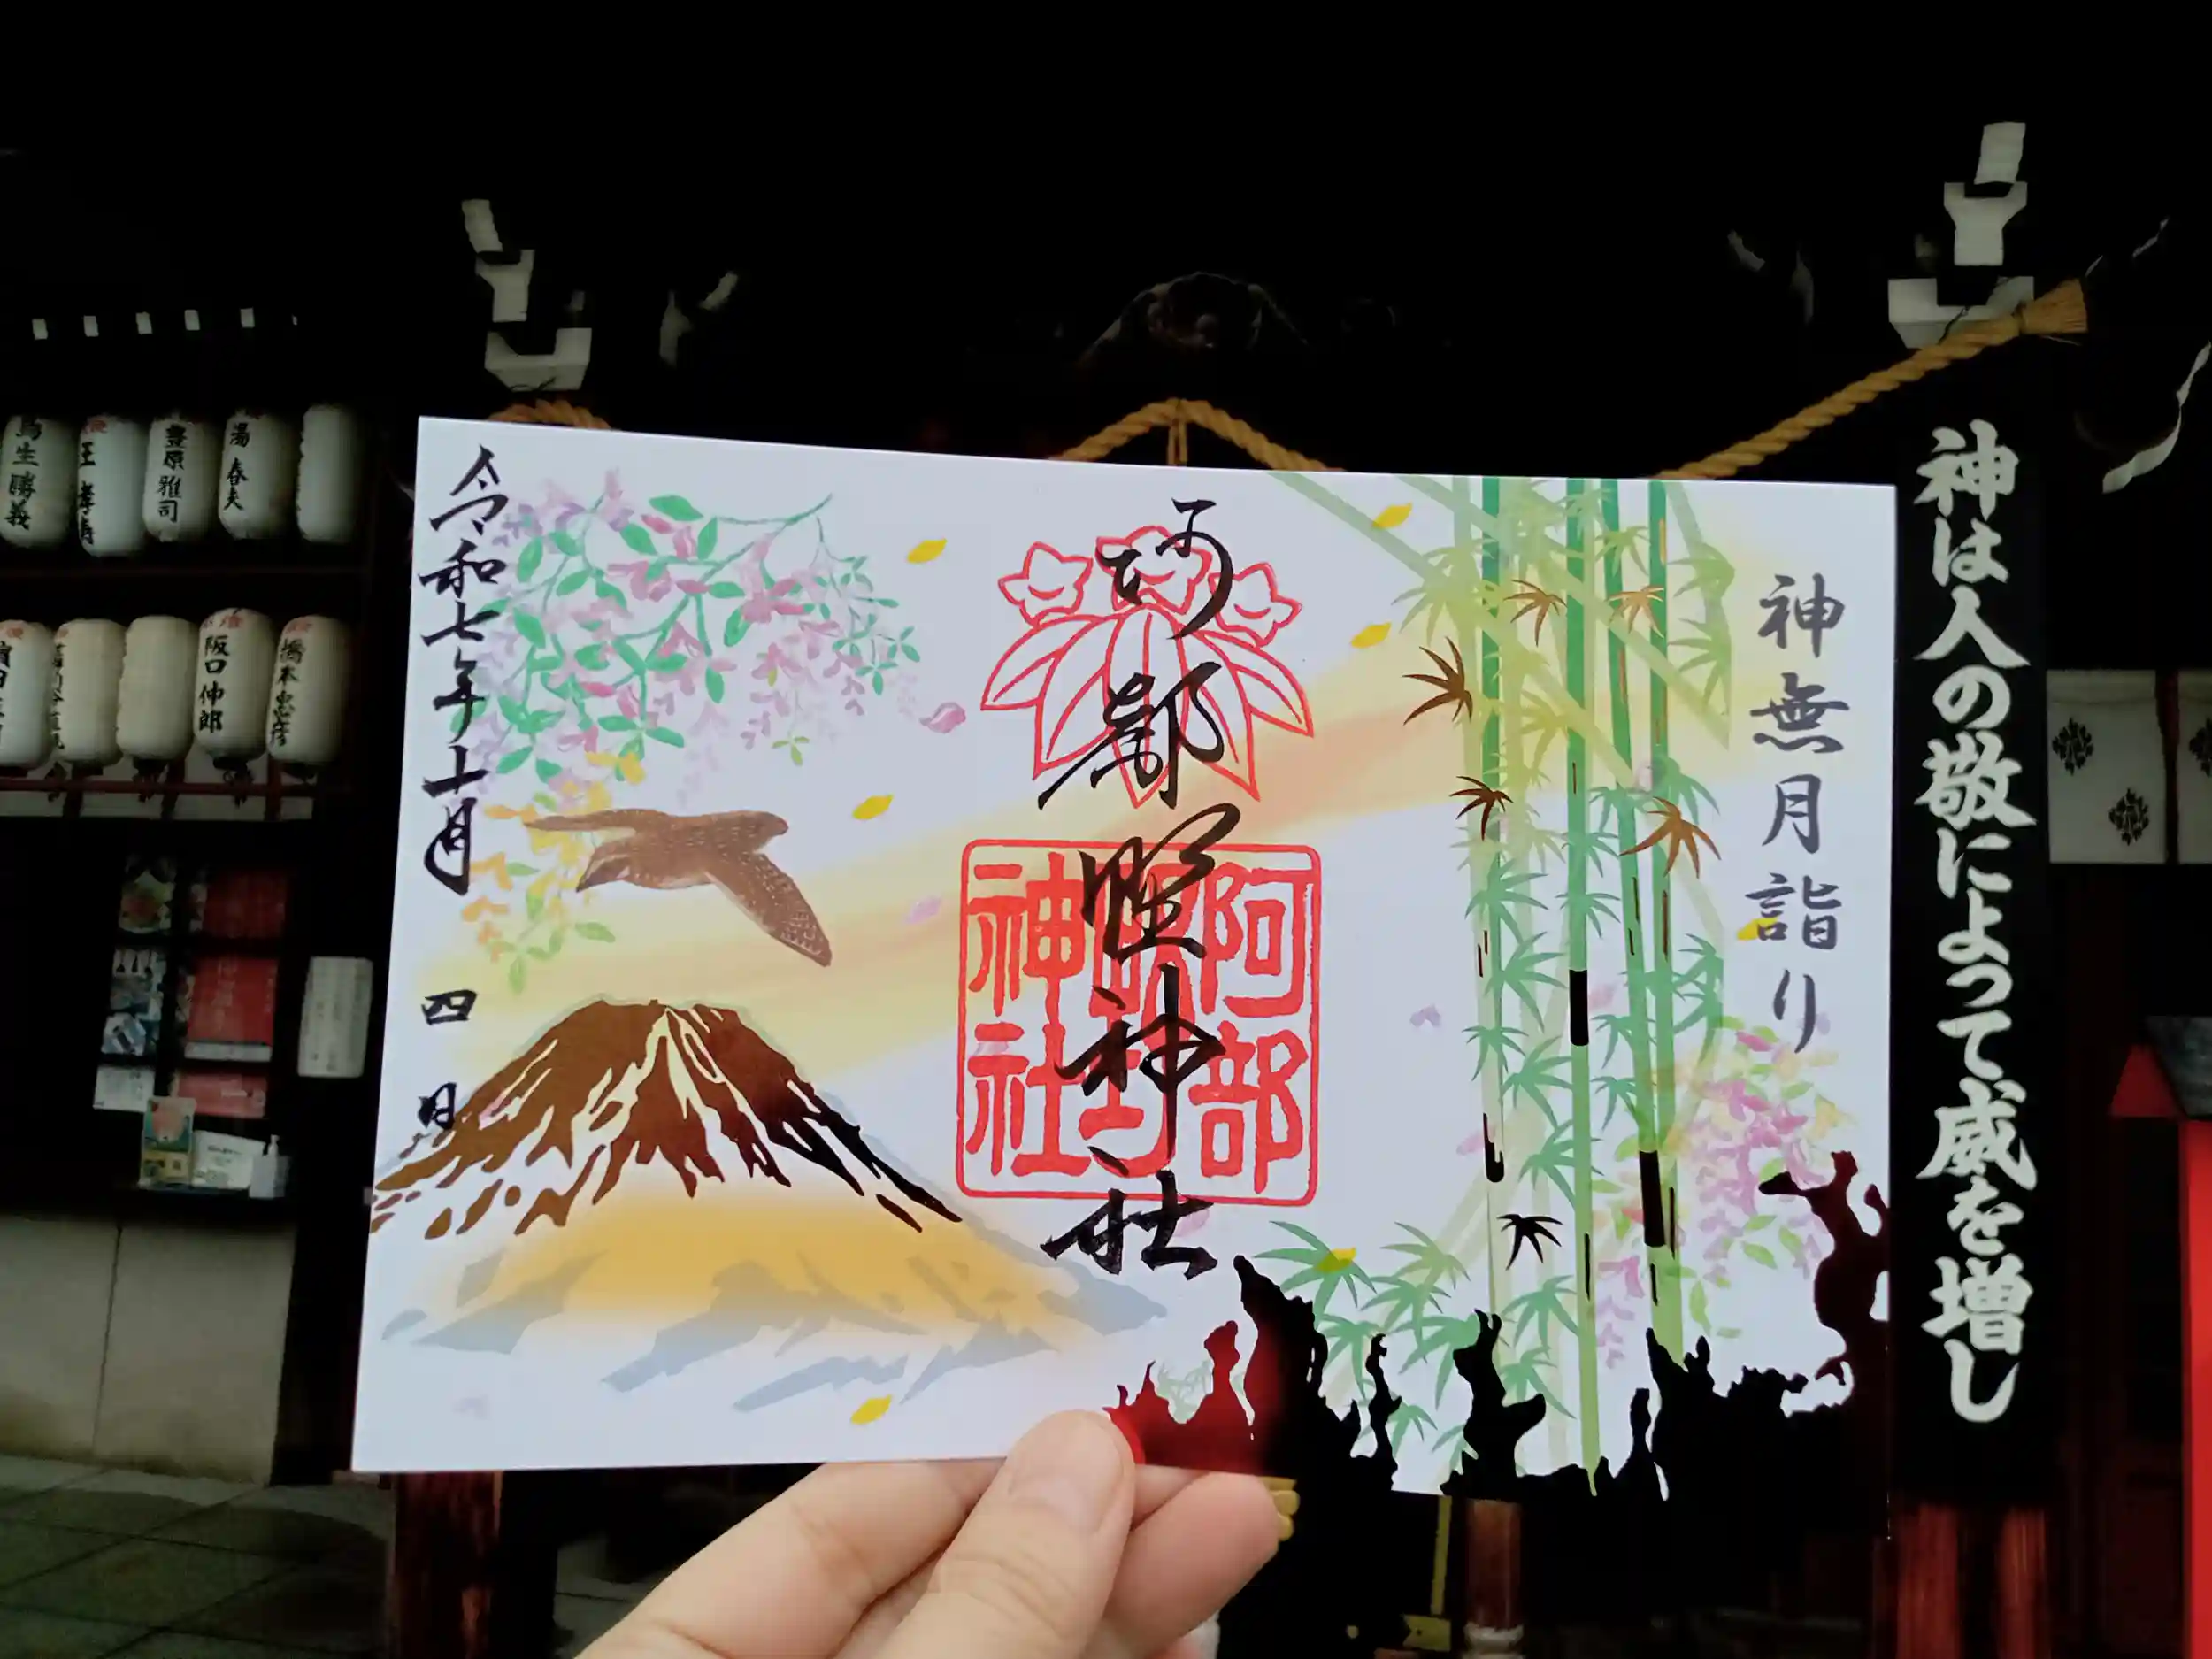 神は人の敬によって威を増し
神無月詣り
阿部野神社
阿部野神社
令和七年十月四日
生勝義
王孝寿
豊原雅司
湯春夫
阪口伸郎
橋本忠彦